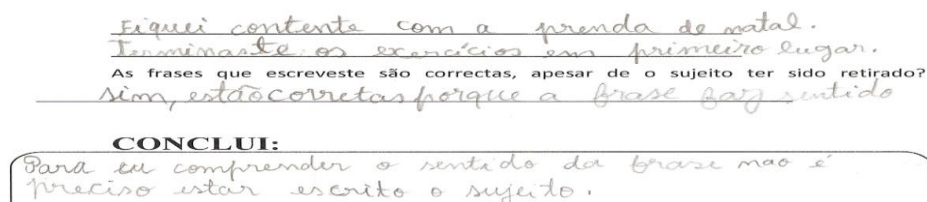 Fiquei contente com a prenda de natal.
Terminaste os exercícios em primeiro lugar.
As frases que escreveste são correctas, apesar de o sujeito ter sido retirado?
sim, estão corretas porque a frase faz sentido
CONCLUI:
Para eu comprender o sentido da frase mao é
preciso estar escrito o sujeito.